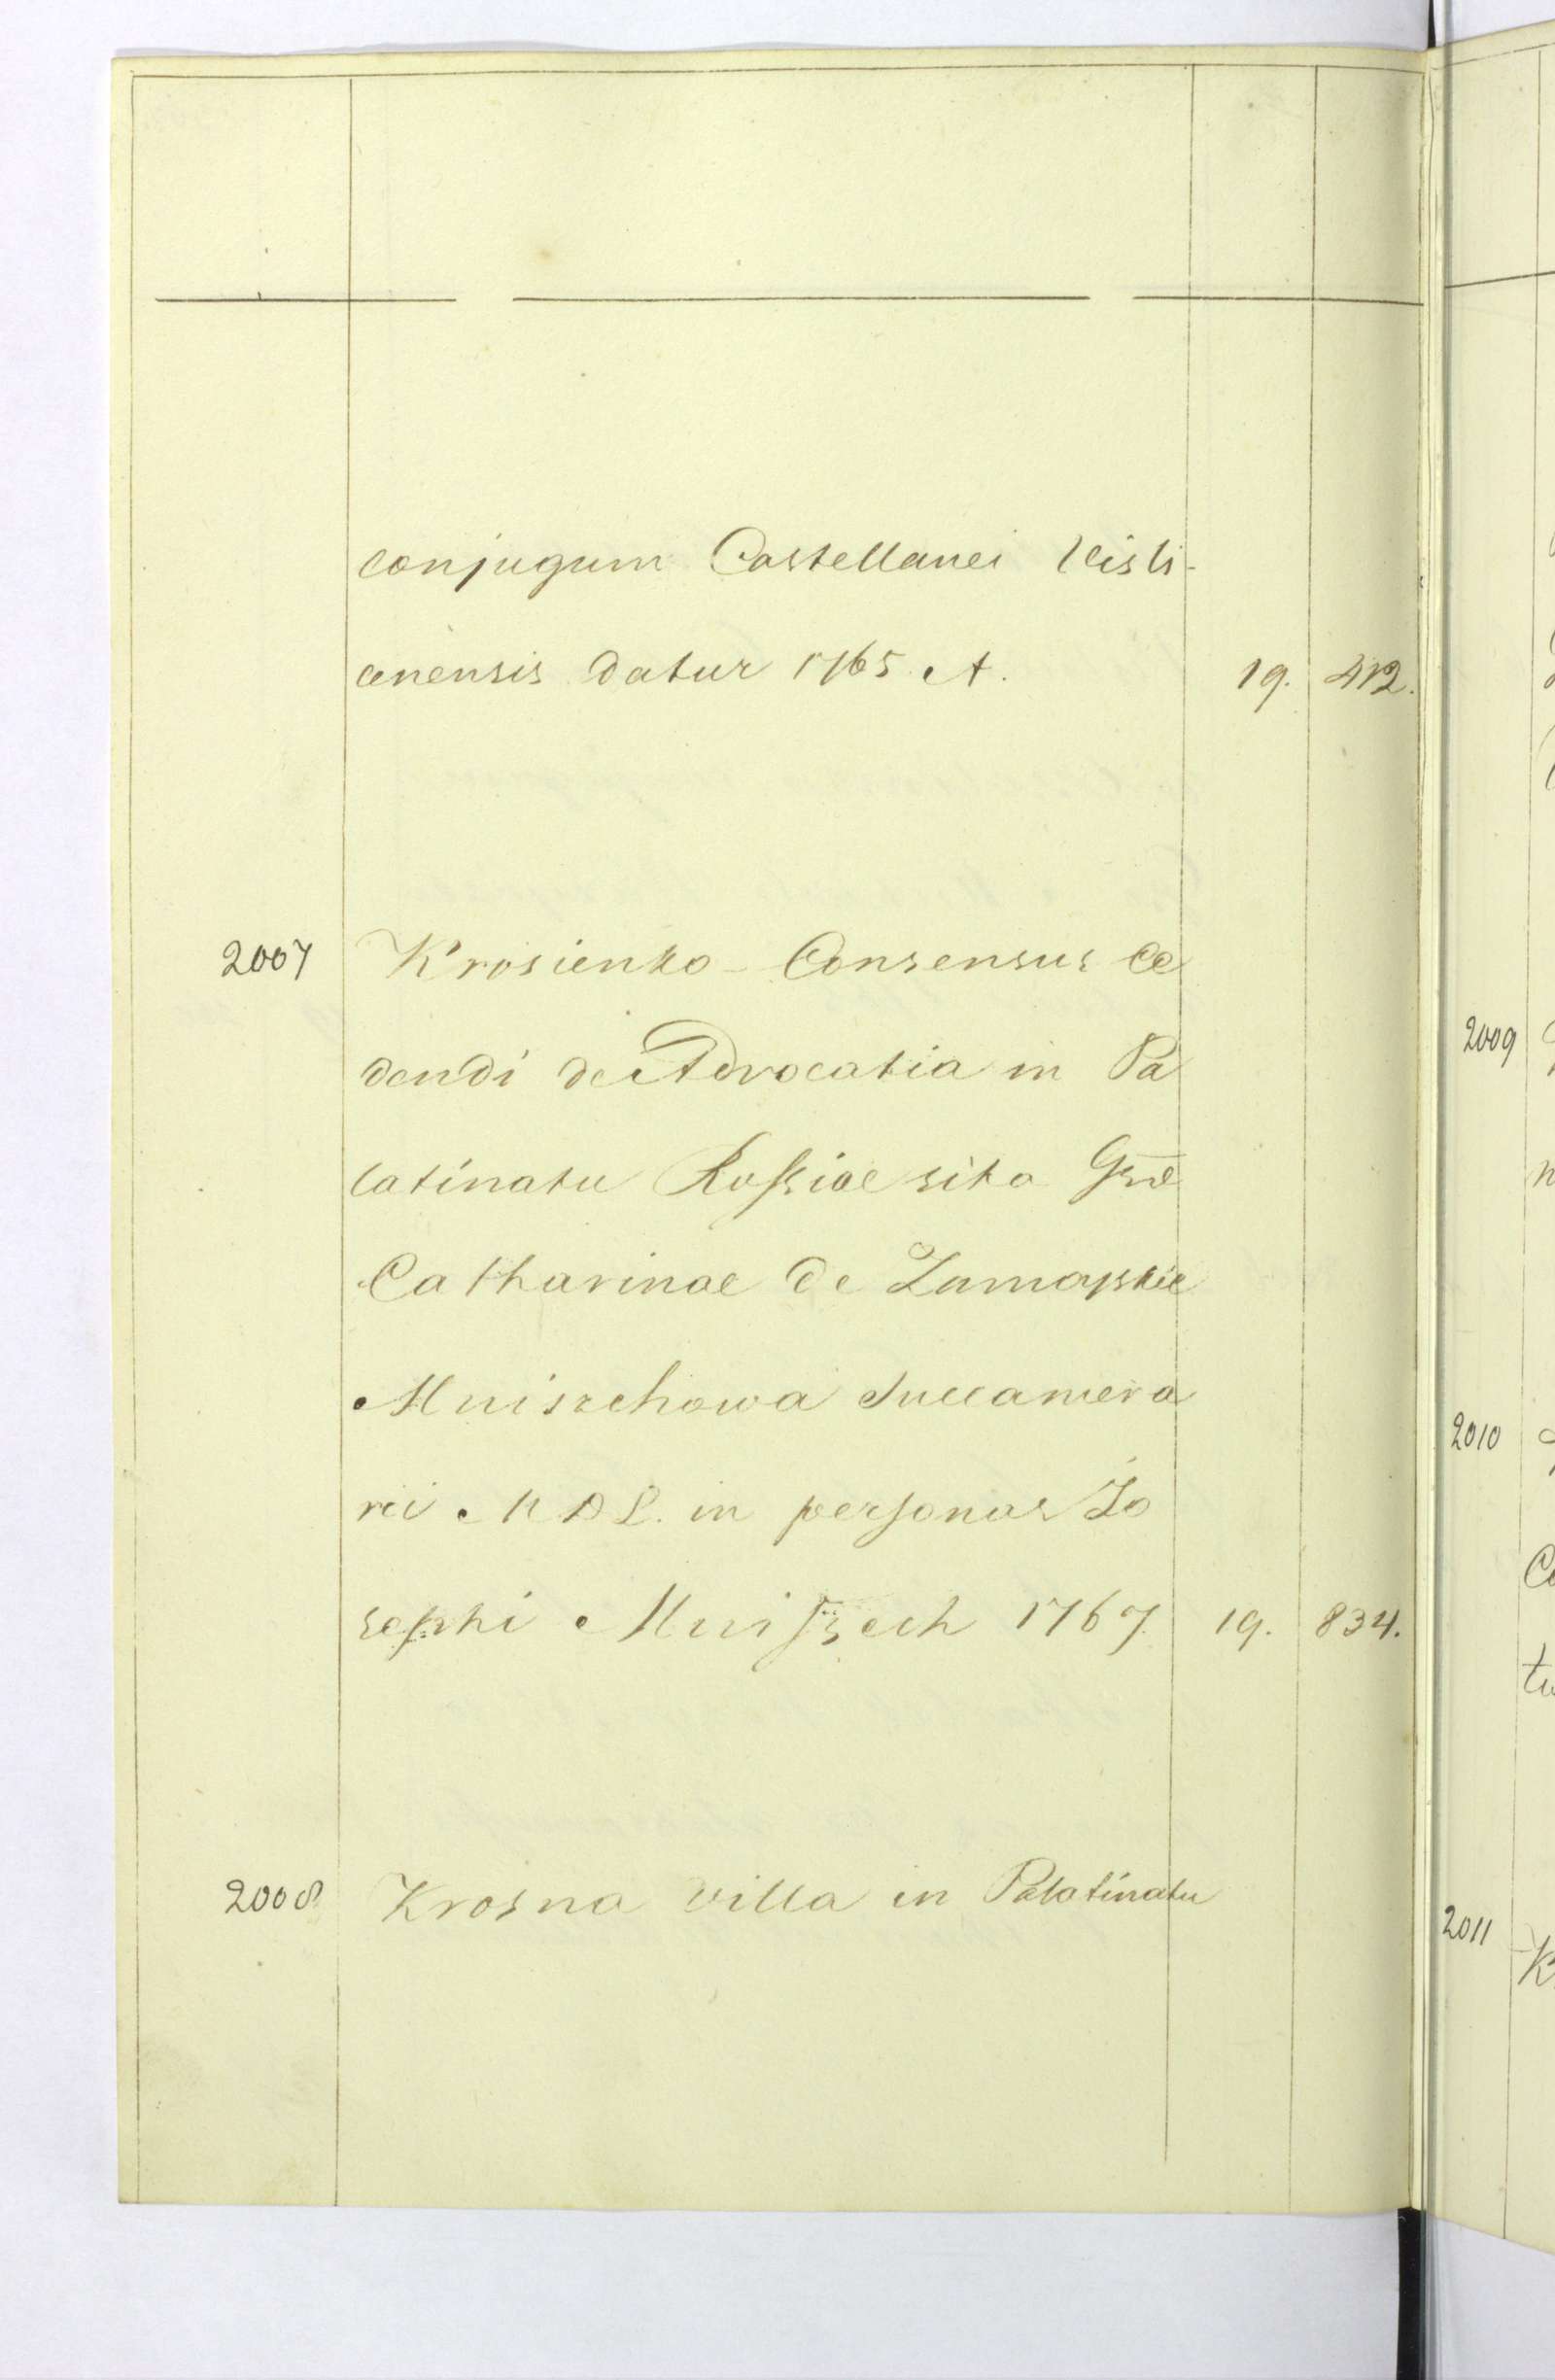 conjugum Castellanei Visli-
cenensis datur 1765 A. 19. 412.
2007 Krosienko - Consensus Ce
dendi de Advocatia in Pa
latinatu Russiae sita Gnae
Catharinae de Zamoyskie
Mniszchowa Succamera
rii M D L. in personas Jo
sephi Mniszech 1767 19. 834.
2008 Krosna villa in Palatinatu
2009
2010
2011